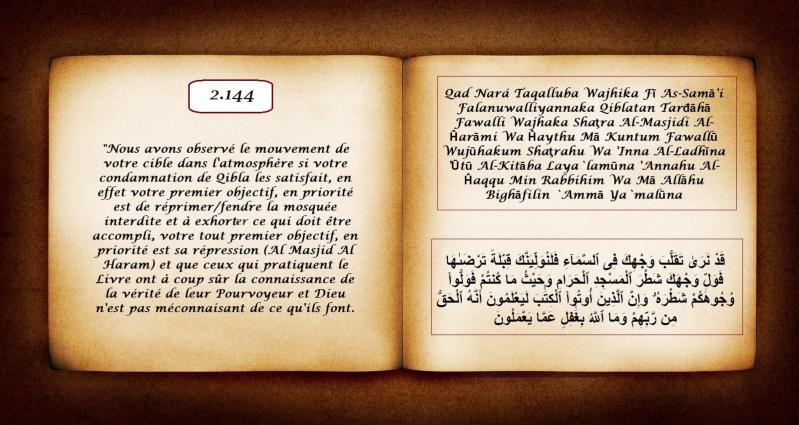 2.144
"Nous avons observé le mouvement de
votre cible dans l'atmosphère si votre
condamnation de Qibla les satisfait, en
effet votre premier objectif, en priorité
est de réprimer/fendre la mosquée
interdite et à exhorter ce qui doit être
accompli, votre tout premier objectif, en
priorité est sa répression (Al Masjid Al
Haram) et que ceux qui pratiquent le
Livre ont à coup sûr la connaissance de
la vérité de leur Pourvoyeur et Dieu
n'est pas méconnaisant de ce qu'ils font.
Qad Nará Taqalluba Wajhika Fī As-Samā'i
Falanuwalliyannaka Qiblatan Tarđāhā
Fawalli Wajhaka Shaţra Al-Masjidi Al-
Ĥarāmi Wa Ĥaythu Mā Kuntum Fawallū
Wujūhakum Shaţrahu Wa 'Inna Al-Ladhīna
'Ūtū Al-Kitāba Laya`lamūna 'Annahu Al-
Ĥaqqu Min Rabbihim Wa Mā Allāhu
Bighāfilin `Ammā Ya`malūna
قَدْ نَرَىٰ تَقَلُّبَ وَجْهِكَ فِى ٱلسَّمَآءِ فَلَنُوَلِّيَنَّكَ قِبْلَةً تَرْضَىٰهَا
فَوَلِّ وَجْهَكَ شَطْرَ ٱلْمَسْجِدِ ٱلْحَرَامِ وَحَيْثُ مَا كُنتُمْ فَوَلُّوا۟
وُجُوهَكُمْ شَطْرَهُۥ وَإِنَّ ٱلَّذِينَ أُوتُوا۟ ٱلْكِتَٰبَ لَيَعْلَمُونَ أَنَّهُ ٱلْحَقُّ
مِن رَّبِّهِمْ وَمَا ٱللَّهُ بِغَٰفِلٍ عَمَّا يَعْمَلُونَ